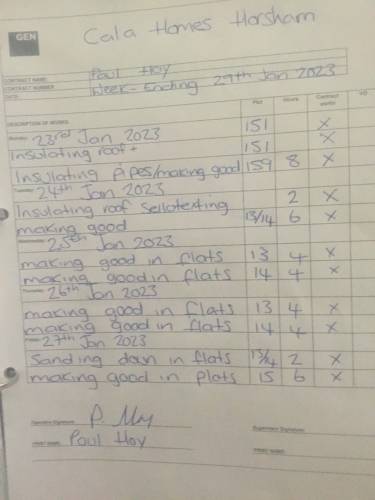 GEN
Cala Homes Horsham
CONTRACT NAME: Paul Hoy
CONTRACT NUMBER
DATE: Week-Ending 29th Jan 2023
DESCRIPTION OF WORKS Plot Hours Contract works VO
Monday 23rd Jan 2023 151 X
Insulating roof + 151 X
Insulating Pipes/making good 159 8 X
Tuesday 24th Jan 2023
Insulating roof Sellotexting 2 X
making good 13/14 6 X
Wednesday 25th Jan 2023
making good in flats 13 4 X
making good in flats 14 4 X
Thursday 26th Jan 2023
making good in flats 13 4 X
making good in flats 14 4 X
Friday 27th Jan 2023
Sanding down in flats 13/14 2 X
making good in plats 15 6 X
Operative Signature: P. Hoy
Supervisor Signature:
PRINT NAME: Paul Hoy
PRINT NAME: